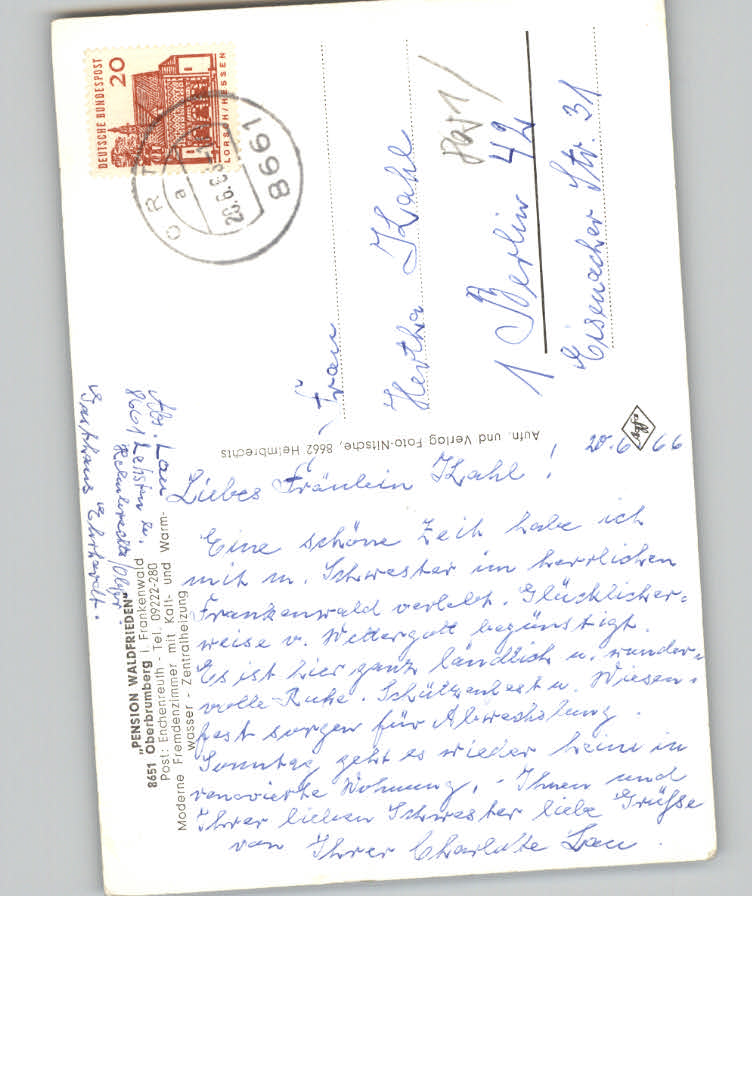 DEUTSCHE BUNDESPOST
20
LORSCH/HESSEN
8661
a
Frau
Hertha Kahl
1 Berlin 42
Eisenacher Str. 31
Abs. Lau
8661 Lehsten b.
Helmbrechts/Obfr.
Gasthaus Ehrhardt.
„PENSION WALDFRIEDEN"
8651 Oberbrumberg i. Frankenwald
Post: Enchenreuth - Tel. 09222-280
Moderne Fremdenzimmer mit Kalt- und Warm-
wasser - Zentralheizung
Aufn. und Verlag Foto-Nitsche, 8662 Helmbrechts
20.6.66
Liebes Fräulein Kahl!
Eine schöne Zeit habe ich
mit m. Schwester im herrlichen
Frankenwald verlebt. Glücklicher-
weise v. Wettergott begünstigt.
Es ist hier ganz ländlich u. wunder-
volle Ruhe. Schützenfest u. Wiesen-
fest sorgen für Abwechslung.
Sonntag geht es wieder heim in
renovierte Wohnung. - Ihnen und
Ihrer lieben Schwester liebe Grüße
von Ihrer Charlotte Lau.